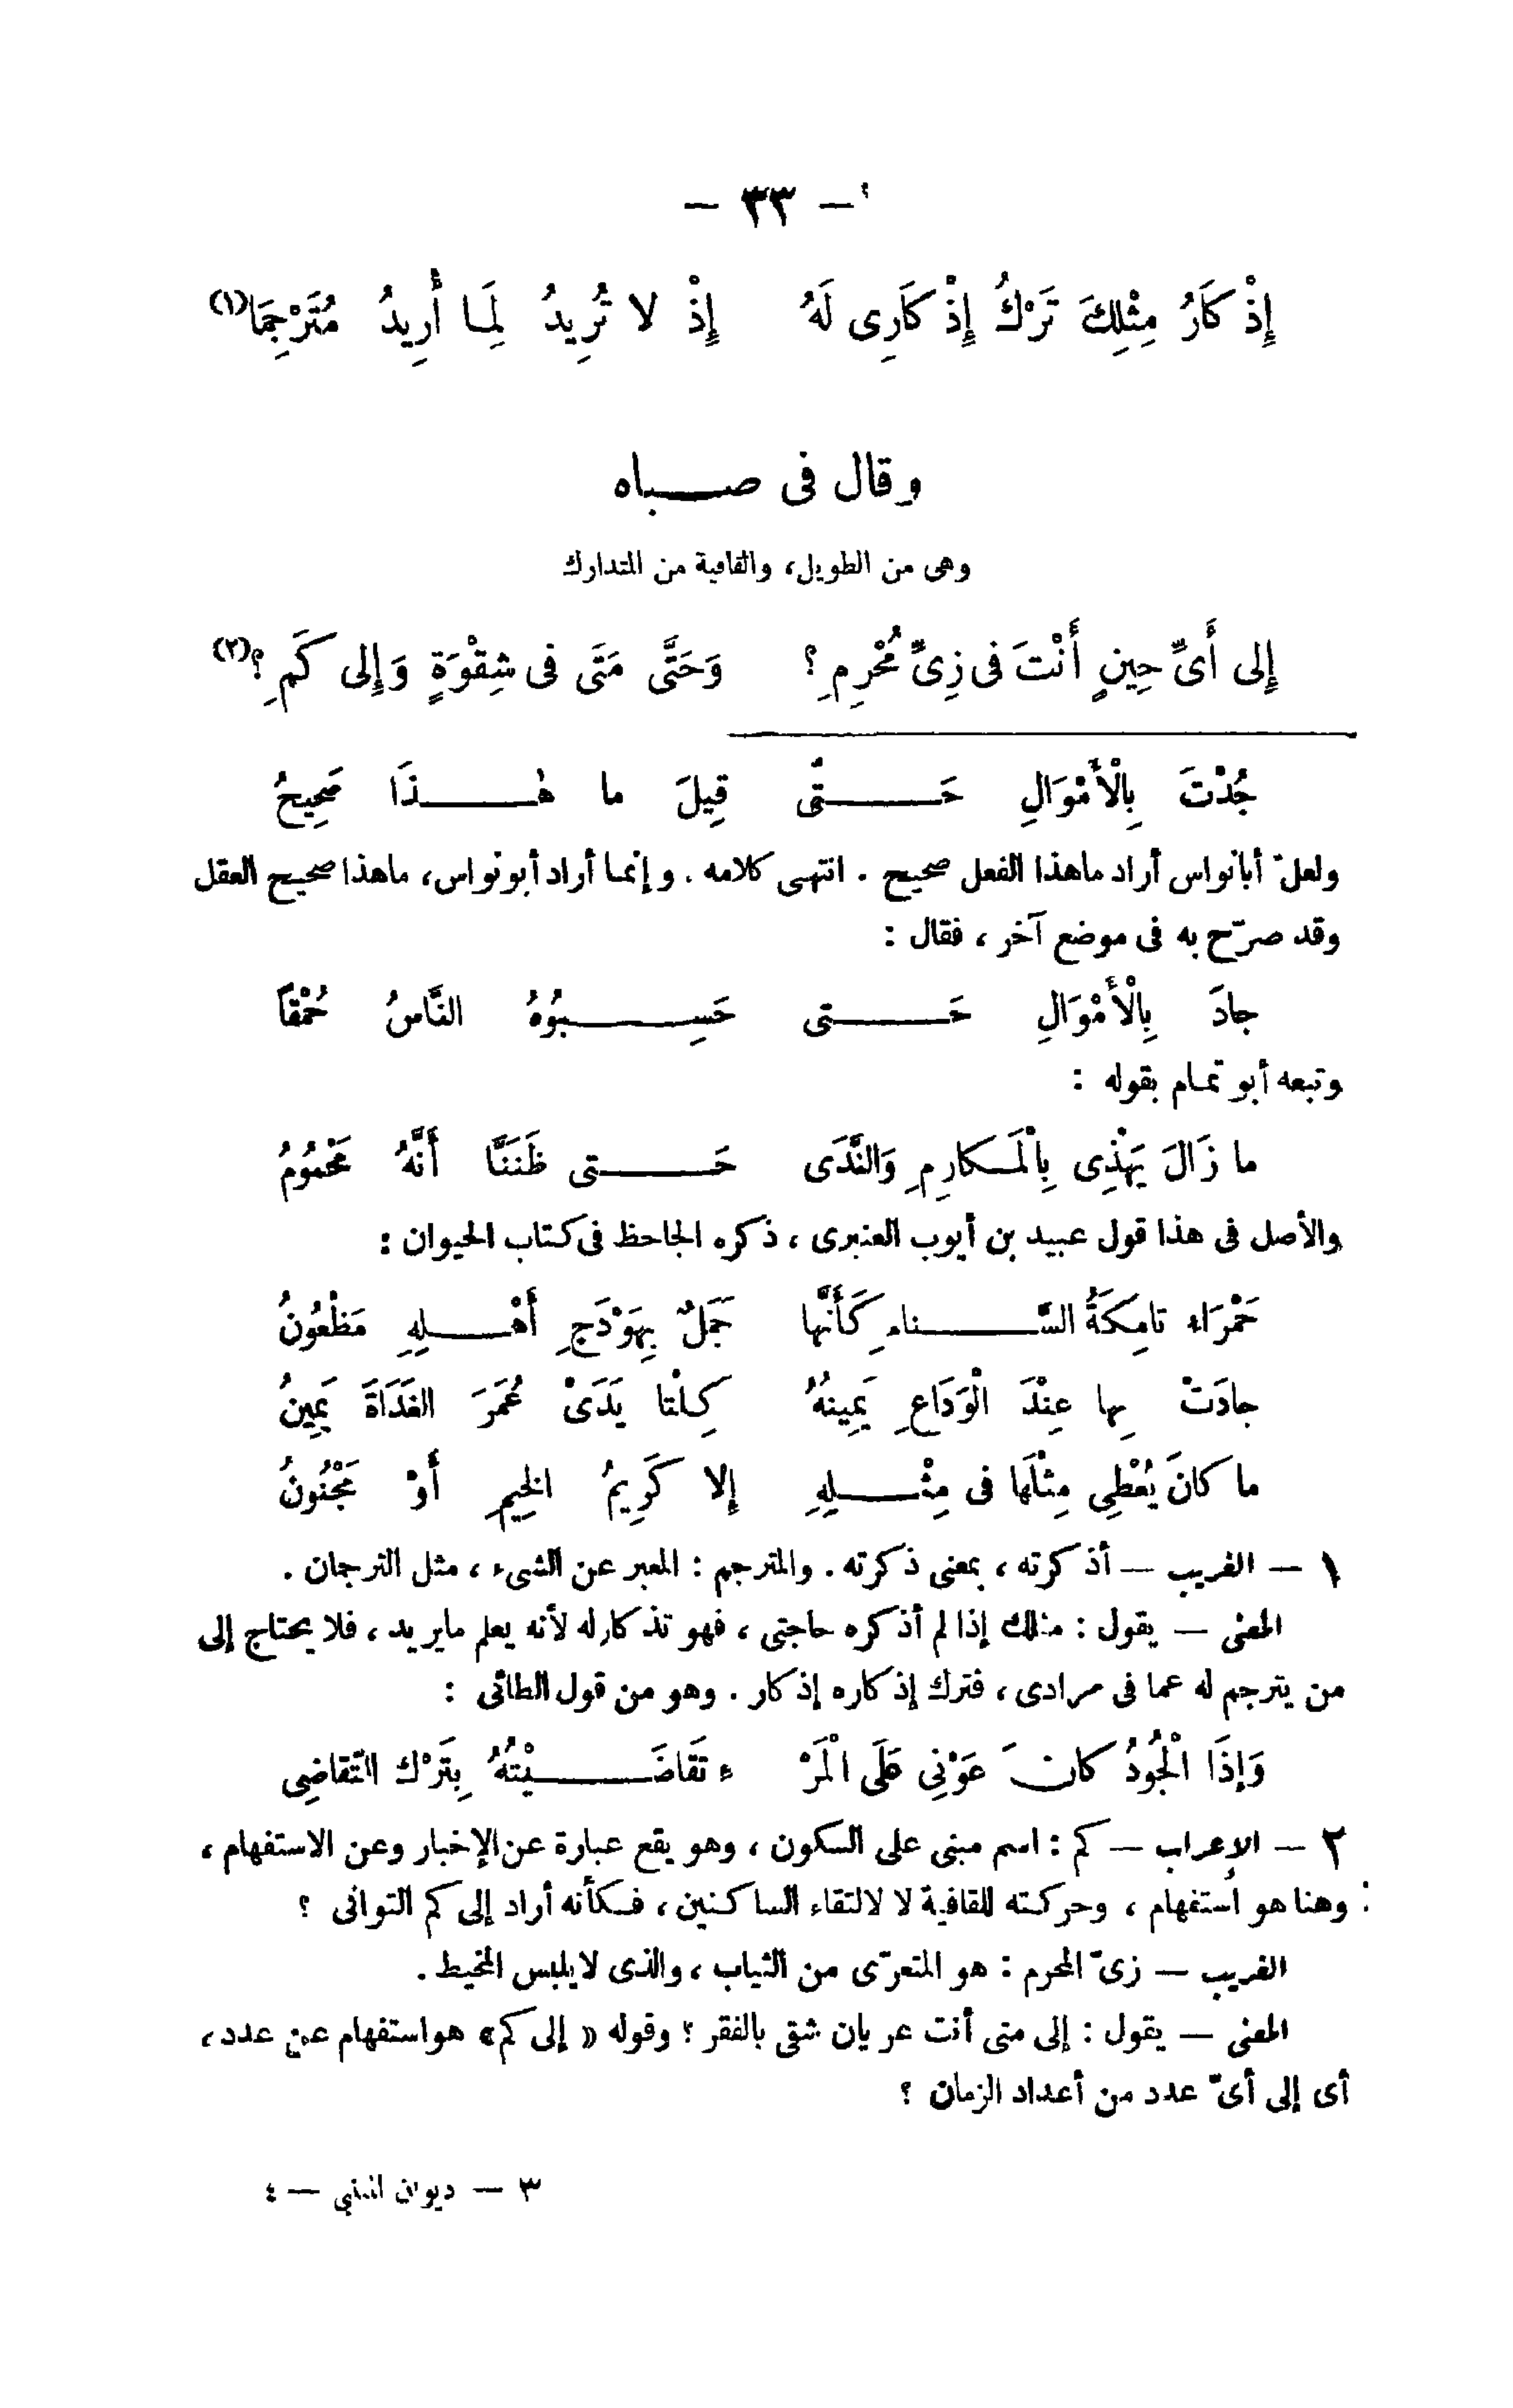 — ٣٣ —
إِذْ كَارُ مِثْلِكَ تَرْكُ إِذْ كَارِى لَهُ إِذْ لا تُرِيدُ لِمَا أُرِيدُ مُتَرْجِمَا(١)
وقال فى صـــباه
وهى من الطويل، والقافية من المتدارك
إِلى أَىِّ حِينٍ أَنْتَ فى زِىِّ مُحْرِمِ ؟ وَحَتَّى مَتَى فى شِقْوَةٍ وَإِلى كَمِ ؟(٢)
جُدْتَ بِالْأَمْوَالِ حَـــتَّى قِيلَ ما هٰـــذَا صَحِيحُ
ولعلّ أبانواس أراد ماهذا الفعل صحيح . انتهى كلامه . وإنما أراد أبو نواس، ماهذا صحيح العقل
وقد صرّح به فى موضع آخر ، فقال :
جادَ بِالْأَمْوَالِ حَـــتى حَسِـــبُوهُ النَّاسُ حُمْقاً
وتبعه أبو تمام بقوله :
ما زَالَ يَهْذِى بِالْمَكارِمِ وَالنَّدَى حَـــتى ظَنَنَّا أَنَّهُ مَحْمُومُ
والأصل فى هذا قول عبيد بن أيوب العنبرى ، ذكره الجاحظ فى كتاب الحيوان :
حَمْرَاء تامِكَةُ السَّـــنامِ كَأَنَّها جَمَلٌ بِهَوْدَجِ أَهْـــلِهِ مَظْعُونُ
جادَتْ بِها عِنْدَ الْوَدَاعِ يَمِينُهُ كِلْتا يَدَىْ عُمَرَ الغَدَاةَ يَمِينُ
ما كانَ يُعْطِى مِثْلَها فى مِثْـــلِهِ إِلا كَرِيمُ الخِيمِ أَوْ مَجْنُونُ
١ — الغريب — أذكرته ، بمعنى ذكرته . والمترجم : المعبر عن الشىء ، مثل الترجمان .
المعنى — يقول : مثلك إذا لم أذكره حاجتى ، فهو تذكار له لأنه يعلم مايريد ، فلا يحتاج إلى
من يترجم له عما فى مرادى ، فترك إذكاره إذكار . وهو من قول الطائى :
وَإِذَا الْجُودُ كانَ عَوْنِى عَلَى الْمَرْ ءِ تَقَاضَـــيْتُهُ بِتَرْكِ التَّقاضِى
٢ — الإعراب — كم : اسم مبنى على السكون ، وهو يقع عبارة عن الإخبار وعن الاستفهام ،
وهنا هو استفهام ، وحركته للقافية لا لالتقاء الساكنين ، فكأنه أراد إلى كم التوانى ؟
الغريب — زىّ المحرم : هو المتعرّى من الثياب ، والذى لايلبس المخيط .
المعنى — يقول : إلى متى أنت عريان شقى بالفقر ؟ وقوله « إلى كم » هواستفهام عن عدد ،
أى إلى أىّ عدد من أعداد الزمان ؟
٣ — ديوان المتنبي — ٤